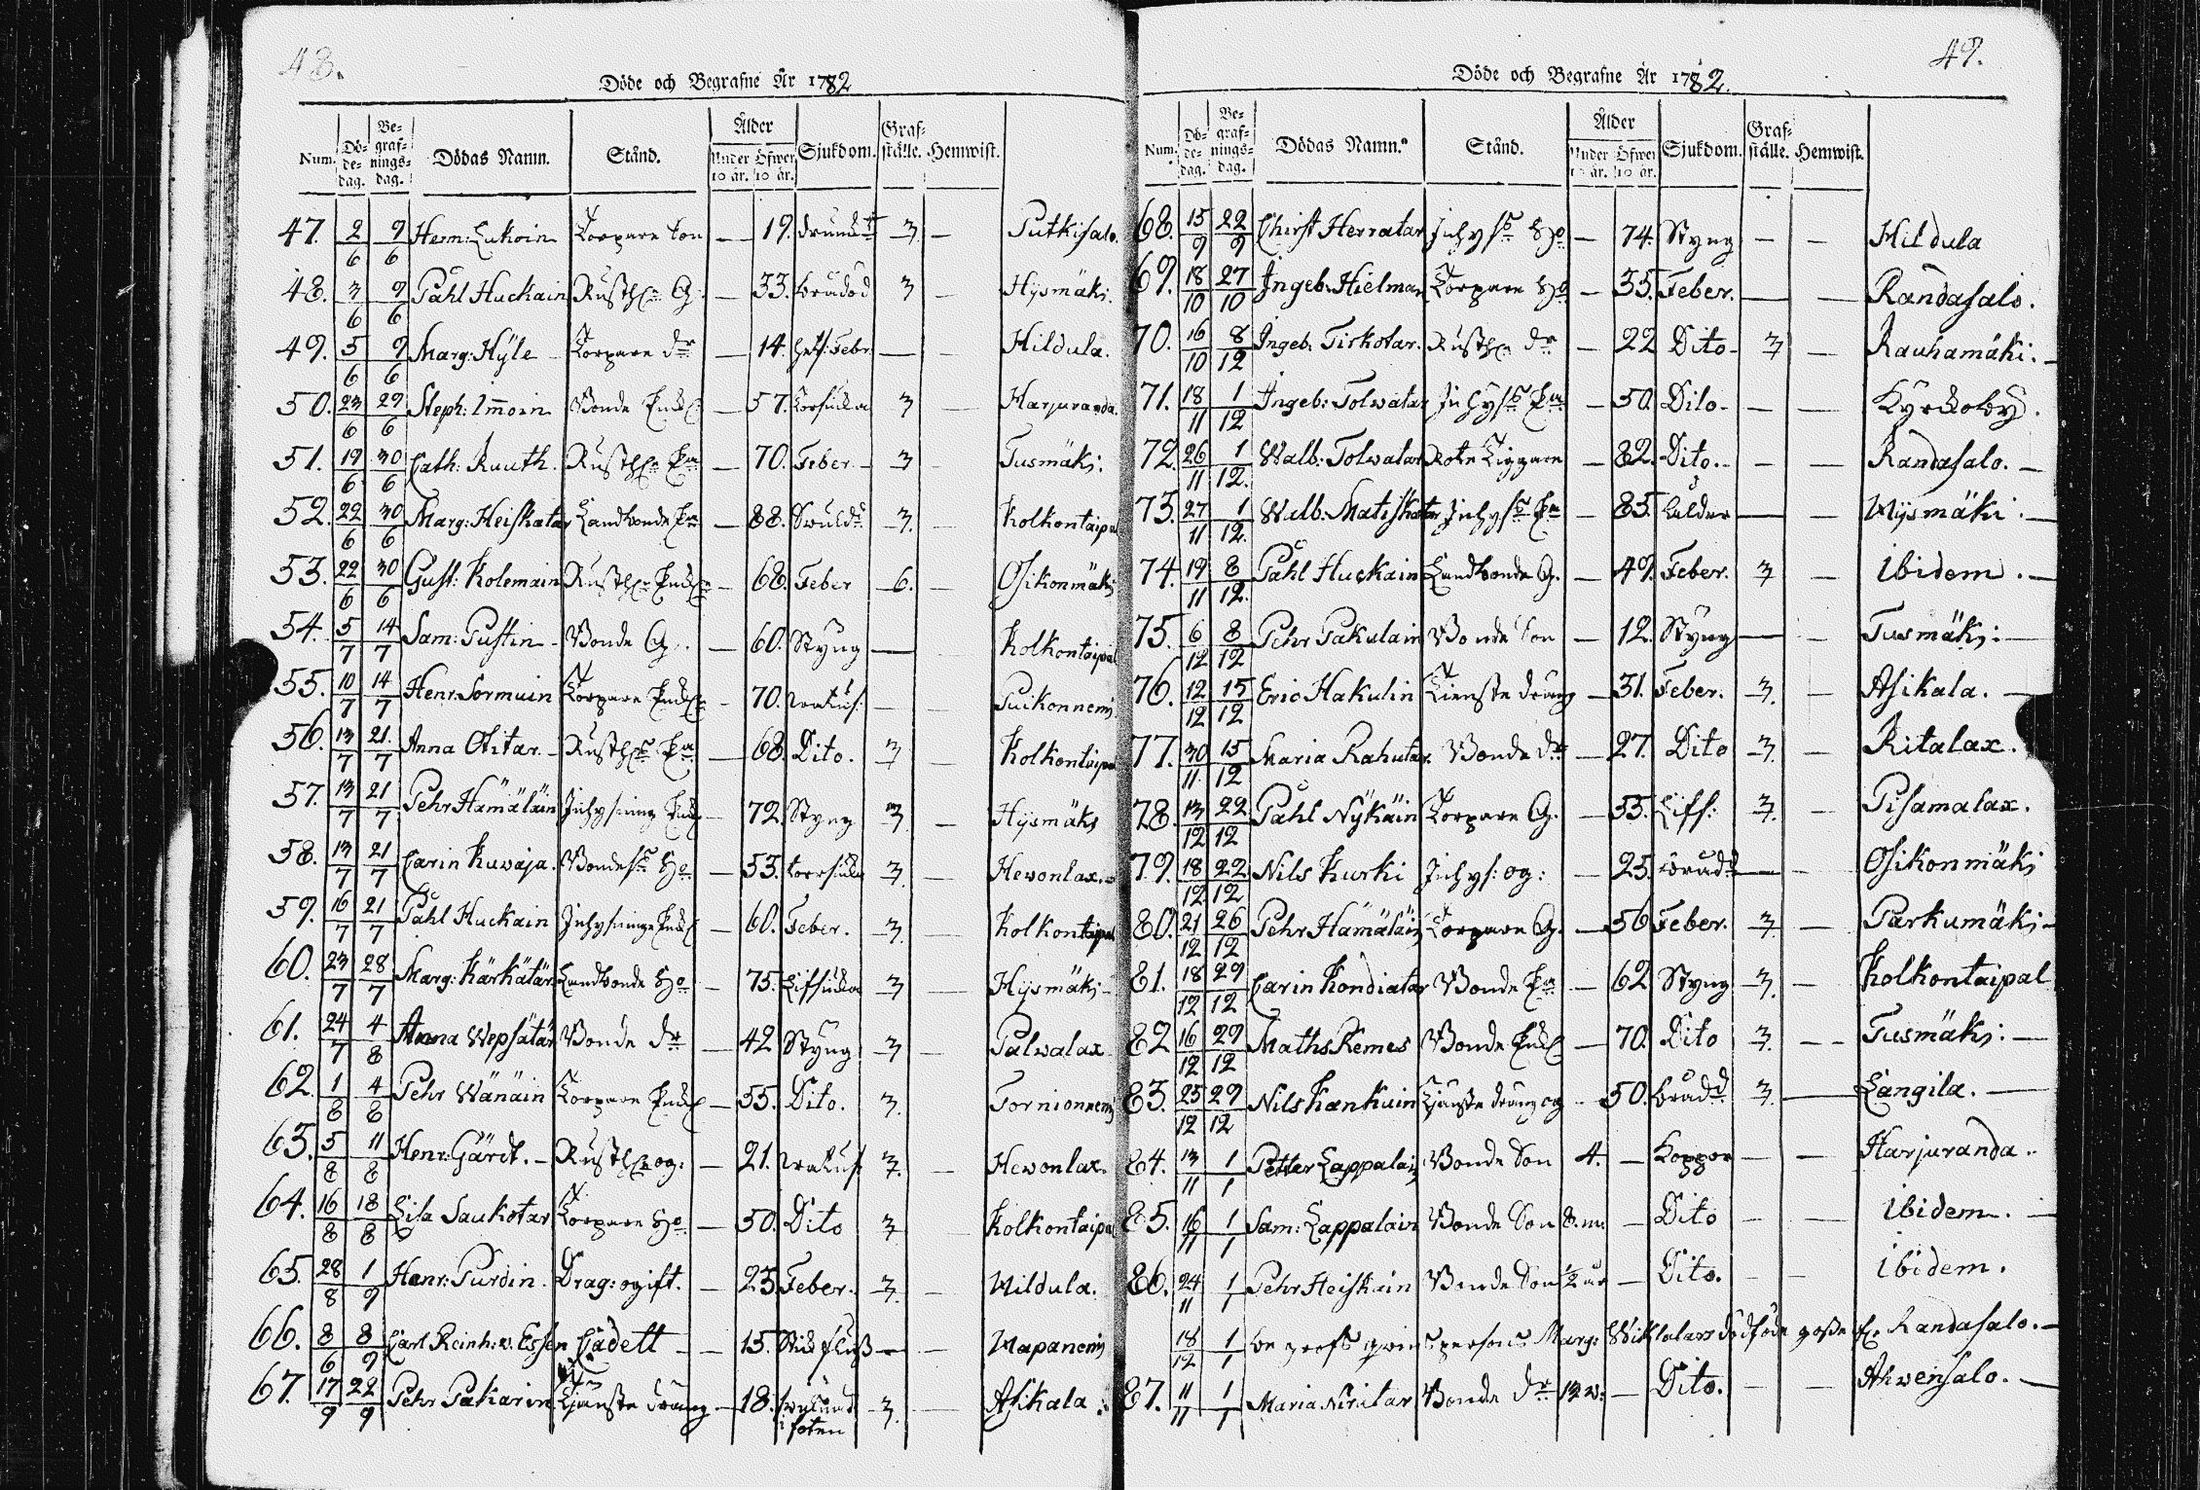 48.
Döde och Begrafne År 1782
Num. Dö-de-dag. Be-graf-nings-dag. Dödas Namn. Stånd. Ålder Under 10 år. Öfwer 10 år. Sjukdom. Graf-ställe. Hemwist.
47. 2/6 9/6 Herm: Lukoin Torpare Son — 19. 3 — Putkisalo.
48. 3/6 9/6 Påhl Huckain Rusth: G. — 33. brådöd 3 — Hysmäki.
49. 5/6 9/6 Marg: Hÿle Torpare dr — 14. Febr. — — Hildula.
50. 23/6 29/6 Steph: Immoin Bonde Enkl: — 57. Torrsiuka 3 — Harjuranda.
51. 19/6 30/6 Cath: Ruuth. Rusth: Ea — 70. Feber — 3 — Tusmäki.
52. 22/6 30/6 Marg: Heiskatar Landbonde Ea — 88. Swulst 3. — Kolkontaipal
53. 22/6 30/6 Gust: Kolemain Rusth: Enkl: — 68. Feber 6. — Osikonmäki
54. 5/7 14/7 Sam: Pustin Bonde G. — 60. Styng — — Kolkontaipal
55. 10/7 14/7 Henr: Sormuin Torpare Enkl: — 70. — — Puikonnemi
56. 13/7 21/7 Anna Ohitar. Rusth: Ea — 68. Dito. 3 — Kolkontaipal
57. 13/7 21/7 Pehr Hämäläin Inhysning Enkl — 72. Styng 3. — Hysmäki
58. 13/7 21/7 Carin Kuwaja. Bonde Ho — 53. Torrsiuka 3. — Hewonlax.
59. 16/7 21/7 Påhl Huckain Inhysninge Enkl — 60. Feber. 3. — Kolkontaipal
60. 23/7 28/7 Marg: Kärkätär Landbonde Ho — 75. Lifsiuka 3 — Hysmäki
61. 24/7 4/8 Anna Wepsätär Bonde dr — 42 Styng 3 — Palwalax
62. 1/8 4/8 Pehr Wänäin Torpare Enkl — 55. Dito. 3. Tornionnemi
63. 5/8 11/8 Henr: Gärdt. Rusth: og: — 21. 3. — Hewonlax.
64. 16/8 18/8 Lisa Saukotar Torpare Ho — 50. Dito 3 — Kolkontaipal
65. 28/8 1/9 Henr: Purdin. Drag: ogift. — 23 Feber. 3. — Hildula.
66. 8/6 8/9 Carl Reinh: v. Essen Cadett — 15. — — Wapanemi
67. 17/9 22/9 Pehr Pakarin Tjenste dräng — 18. i foten 3. — Asikala
49.
Döde och Begrafne År 1782.
Num. Dö-de-dag. Be-graf-nings-dag. Dödas Namn. Stånd. Ålder Under 10 år. Öfwer 10 år. Sjukdom. Graf-ställe. Hemwist.
68. 15/9 22/9 Christ Herratar Inhys Ho — 74. Styng — — Hildula
69. 18/10 27/10 Ingeb: Hielman Torpare Ho — 35. Feber. — — Randasalo.
70. 16/10 8/12 Ingeb. Tirkotar. Rusth: dr — 22 Dito 3 — Rauhamäki.
71. 18/11 1/12 Ingeb: Tolwatar Inhys Ea — 50. Dito — — Kyrckoby.
72. 26/11 1/12. Walb: Tolwatar Rote Tiggare — 82. Dito. — — Randasalo.
73. 27/11 1/12. Walb: Matiskatar Inhys Ea — 85. ålder — — Hysmäki.
74. 19/11 8/12. Påhl Huckain Landbonde G. — 49. Feber. 3 — ibidem.
75. 6/12 8/12 Pehr Pakulain Bonde Son — 12. Styng — — Tusmäki:
76. 12/12 15/12 Eric Hakulin Tienste dräng — 31. Feber. 3. — Asikala.
77. 30/11 15/12 Maria Rahutar. Bonde dr — 27. Dito 3. — Ritalax.
78. 13/12 22/12 Påhl Nykäin Torpare G. — 55. Lifs: 3. — Pisamalax.
79. 18/12 22/12 Nils Kurki Inhys: og: — 25. bråd — — Osikonmäki
80. 21/12 26/12 Pehr Hämäläin Torpare G. — 56 Feber. 3. — Parkumäki
81. 18/12 29/12 Carin Kondiatar Bonde Ea — 62 Styng 3. — Kolkontaipal
82 16/12 29/12 Maths Remes Bonde Enkl — 70. Dito 3. — Tusmäki:
83. 25/12 29/12 Nils Kankuin Tjenste dräng og — 50. bråd d 3. — Längila.
84. 13/11 1/1 Petter Lappalain Bonde Son 4. — Koppor — — Harjuranda.
85. 16/11 1/1 Sam: Lappalain Bonde Son 8. m: — Dito — — ibidem.
86. 24/11 1/1 Pehr Heiskain Bonde Son 1/2 år — Dito. — — ibidem.
18/12 1/1 Marg: dödföde gosse Randasalo.
87. 11/11 1/1 Maria Niritar Bonde dr 12 w: — Dito. — — Ahwensalo.